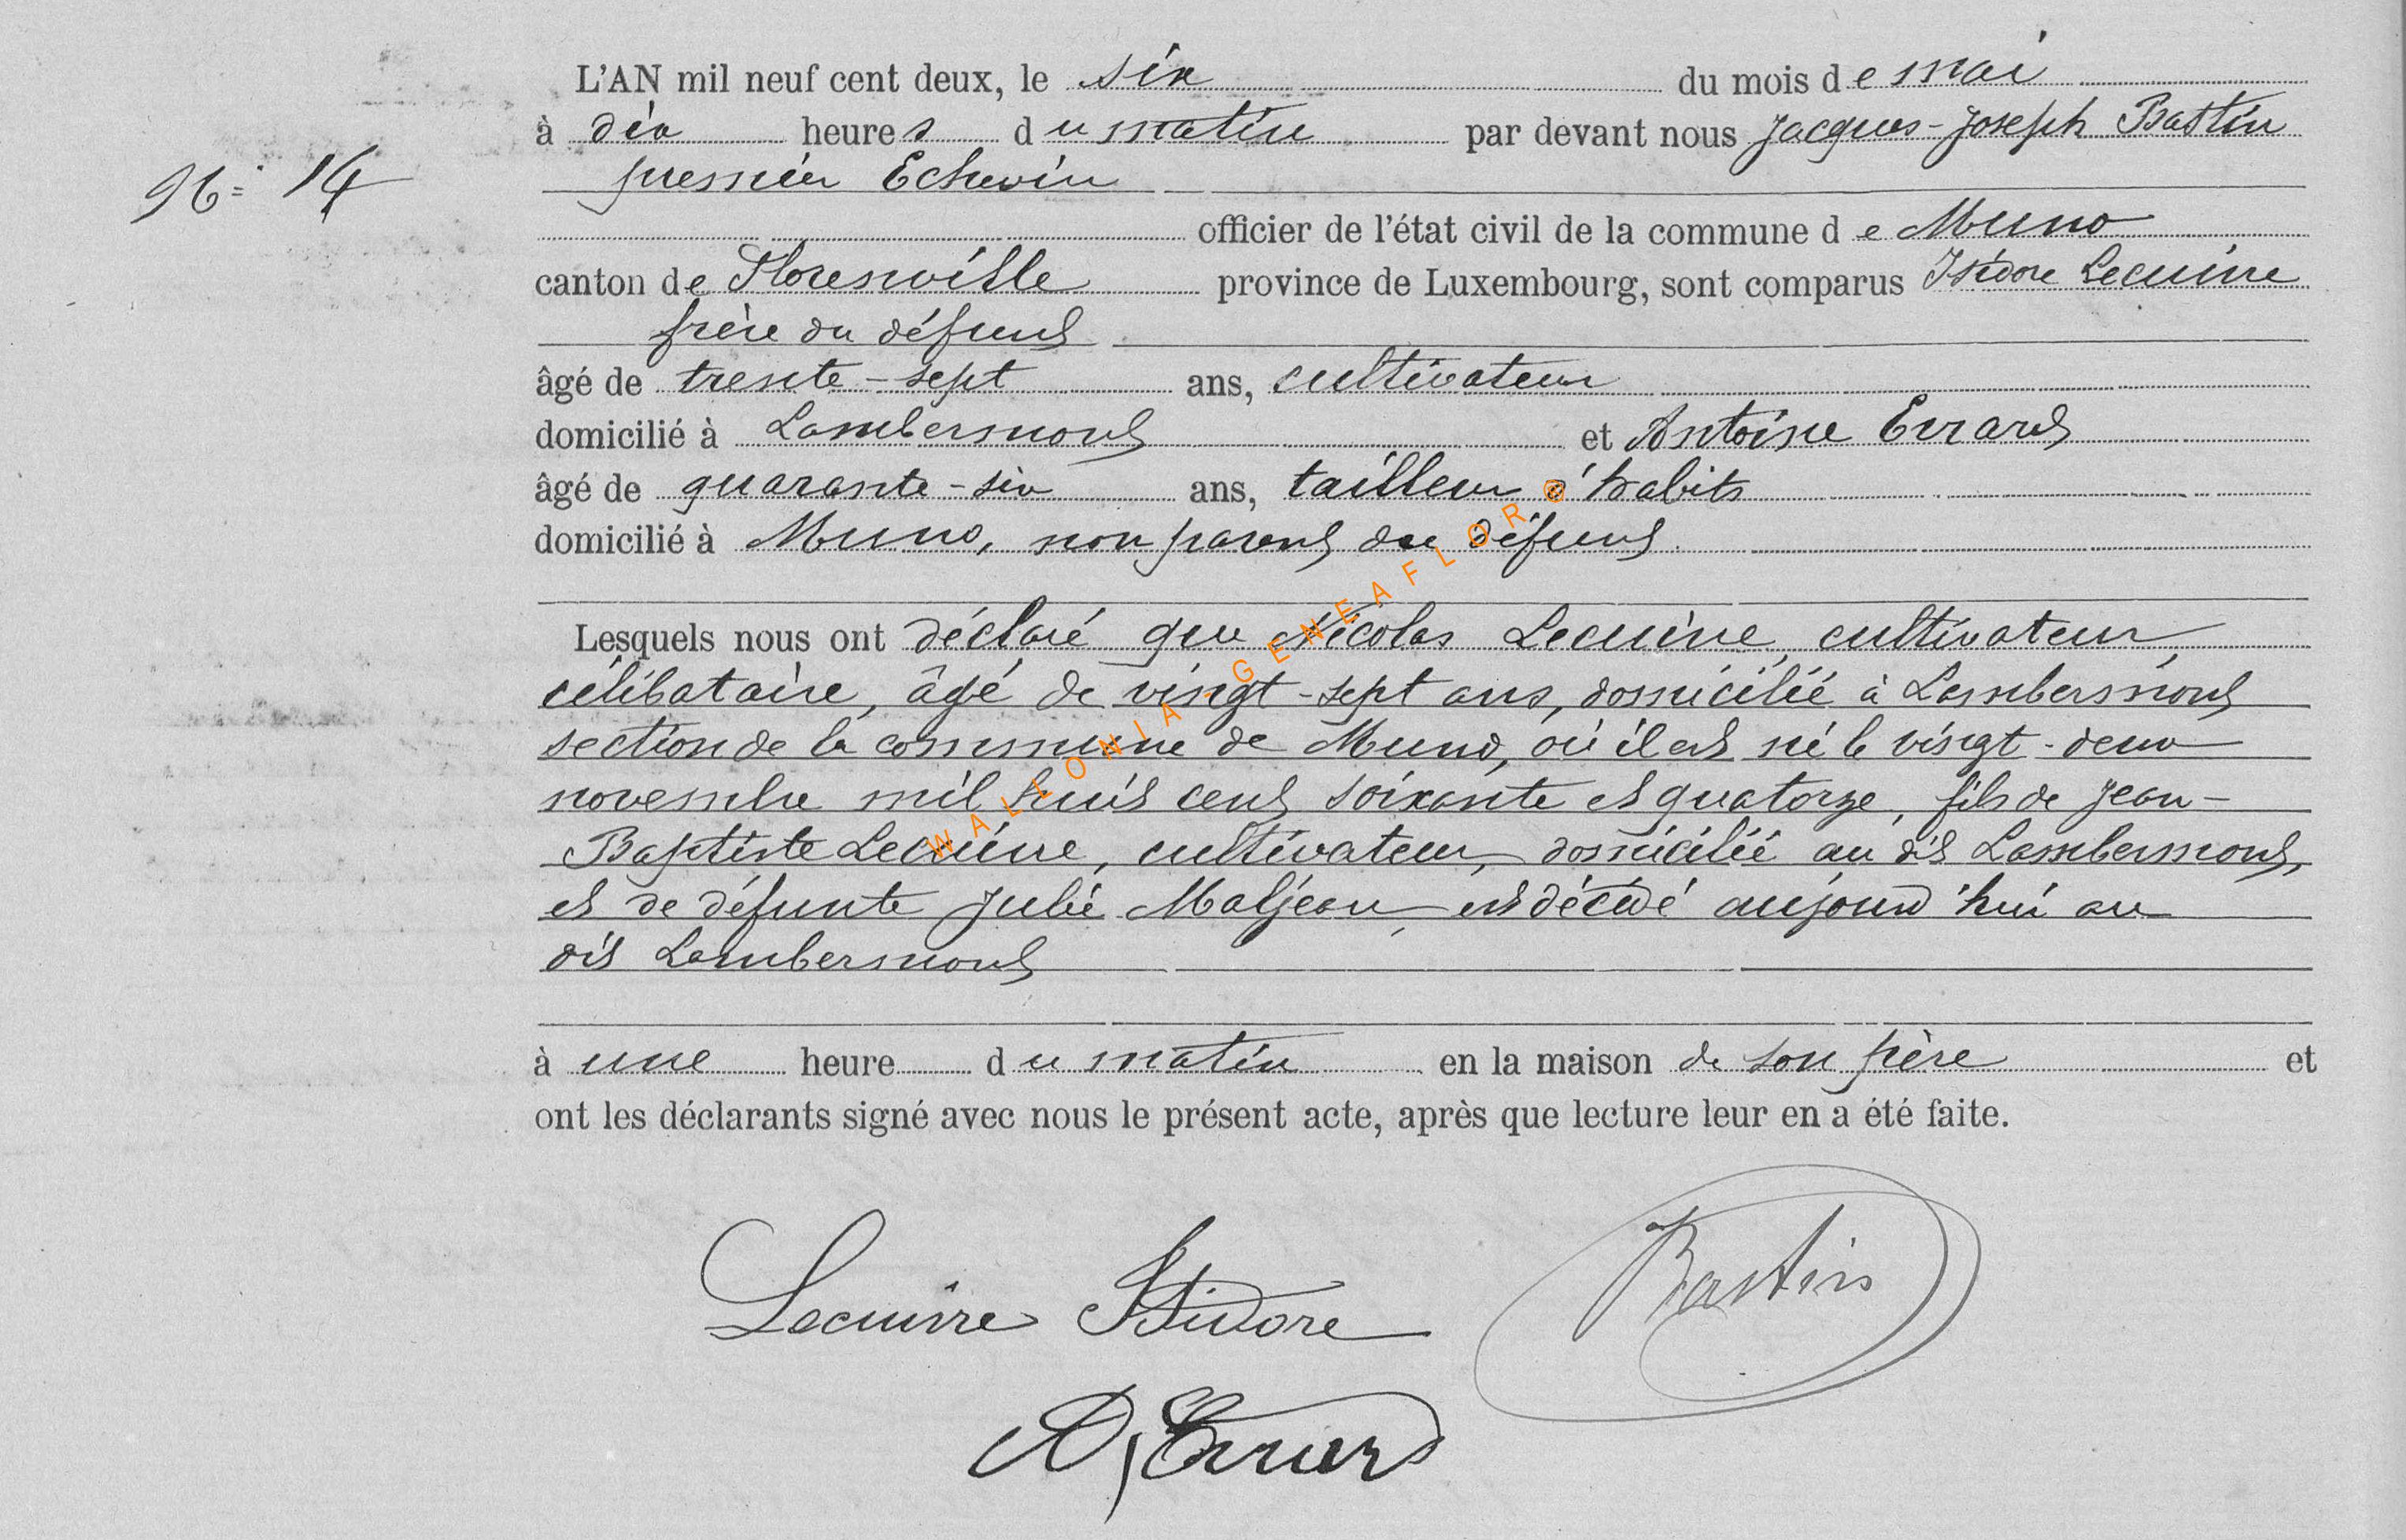 L'AN mil neuf cent deux, le six du mois de mai
à dix heures du matin par devant nous Jacques-Joseph Bastin
premier Echevin
N° 14
officier de l'état civil de la commune de Muno
canton de Florenville province de Luxembourg, sont comparus Isidore Lecuivre
frère du défunt
âgé de trente-sept ans, cultivateur
domicilié à Lambermont et Antoine Errard
âgé de quarante-six ans, tailleur d'habits
domicilié à Muno, non parent du défunt.
Lesquels nous ont déclaré que Nicolas Lecuivre, cultivateur,
célibataire, âgé de vingt-sept ans, domicilié à Lambermont
section de la commune de Muno, où il est né le vingt-deux
novembre mil huit cent soixante et quatorze, fils de Jean-
Baptiste Lecuivre, cultivateur, domicilié au dit Lambermont,
et de défunte Julie Maljean, est décédé aujourd'hui au
dit Lambermont
à une heure du matin en la maison de son père et
ont les déclarants signé avec nous le présent acte, après que lecture leur en a été faite.
Lecuivre Isidore Bastin
A, Errard
WALLONIA-GENEAFLOR®